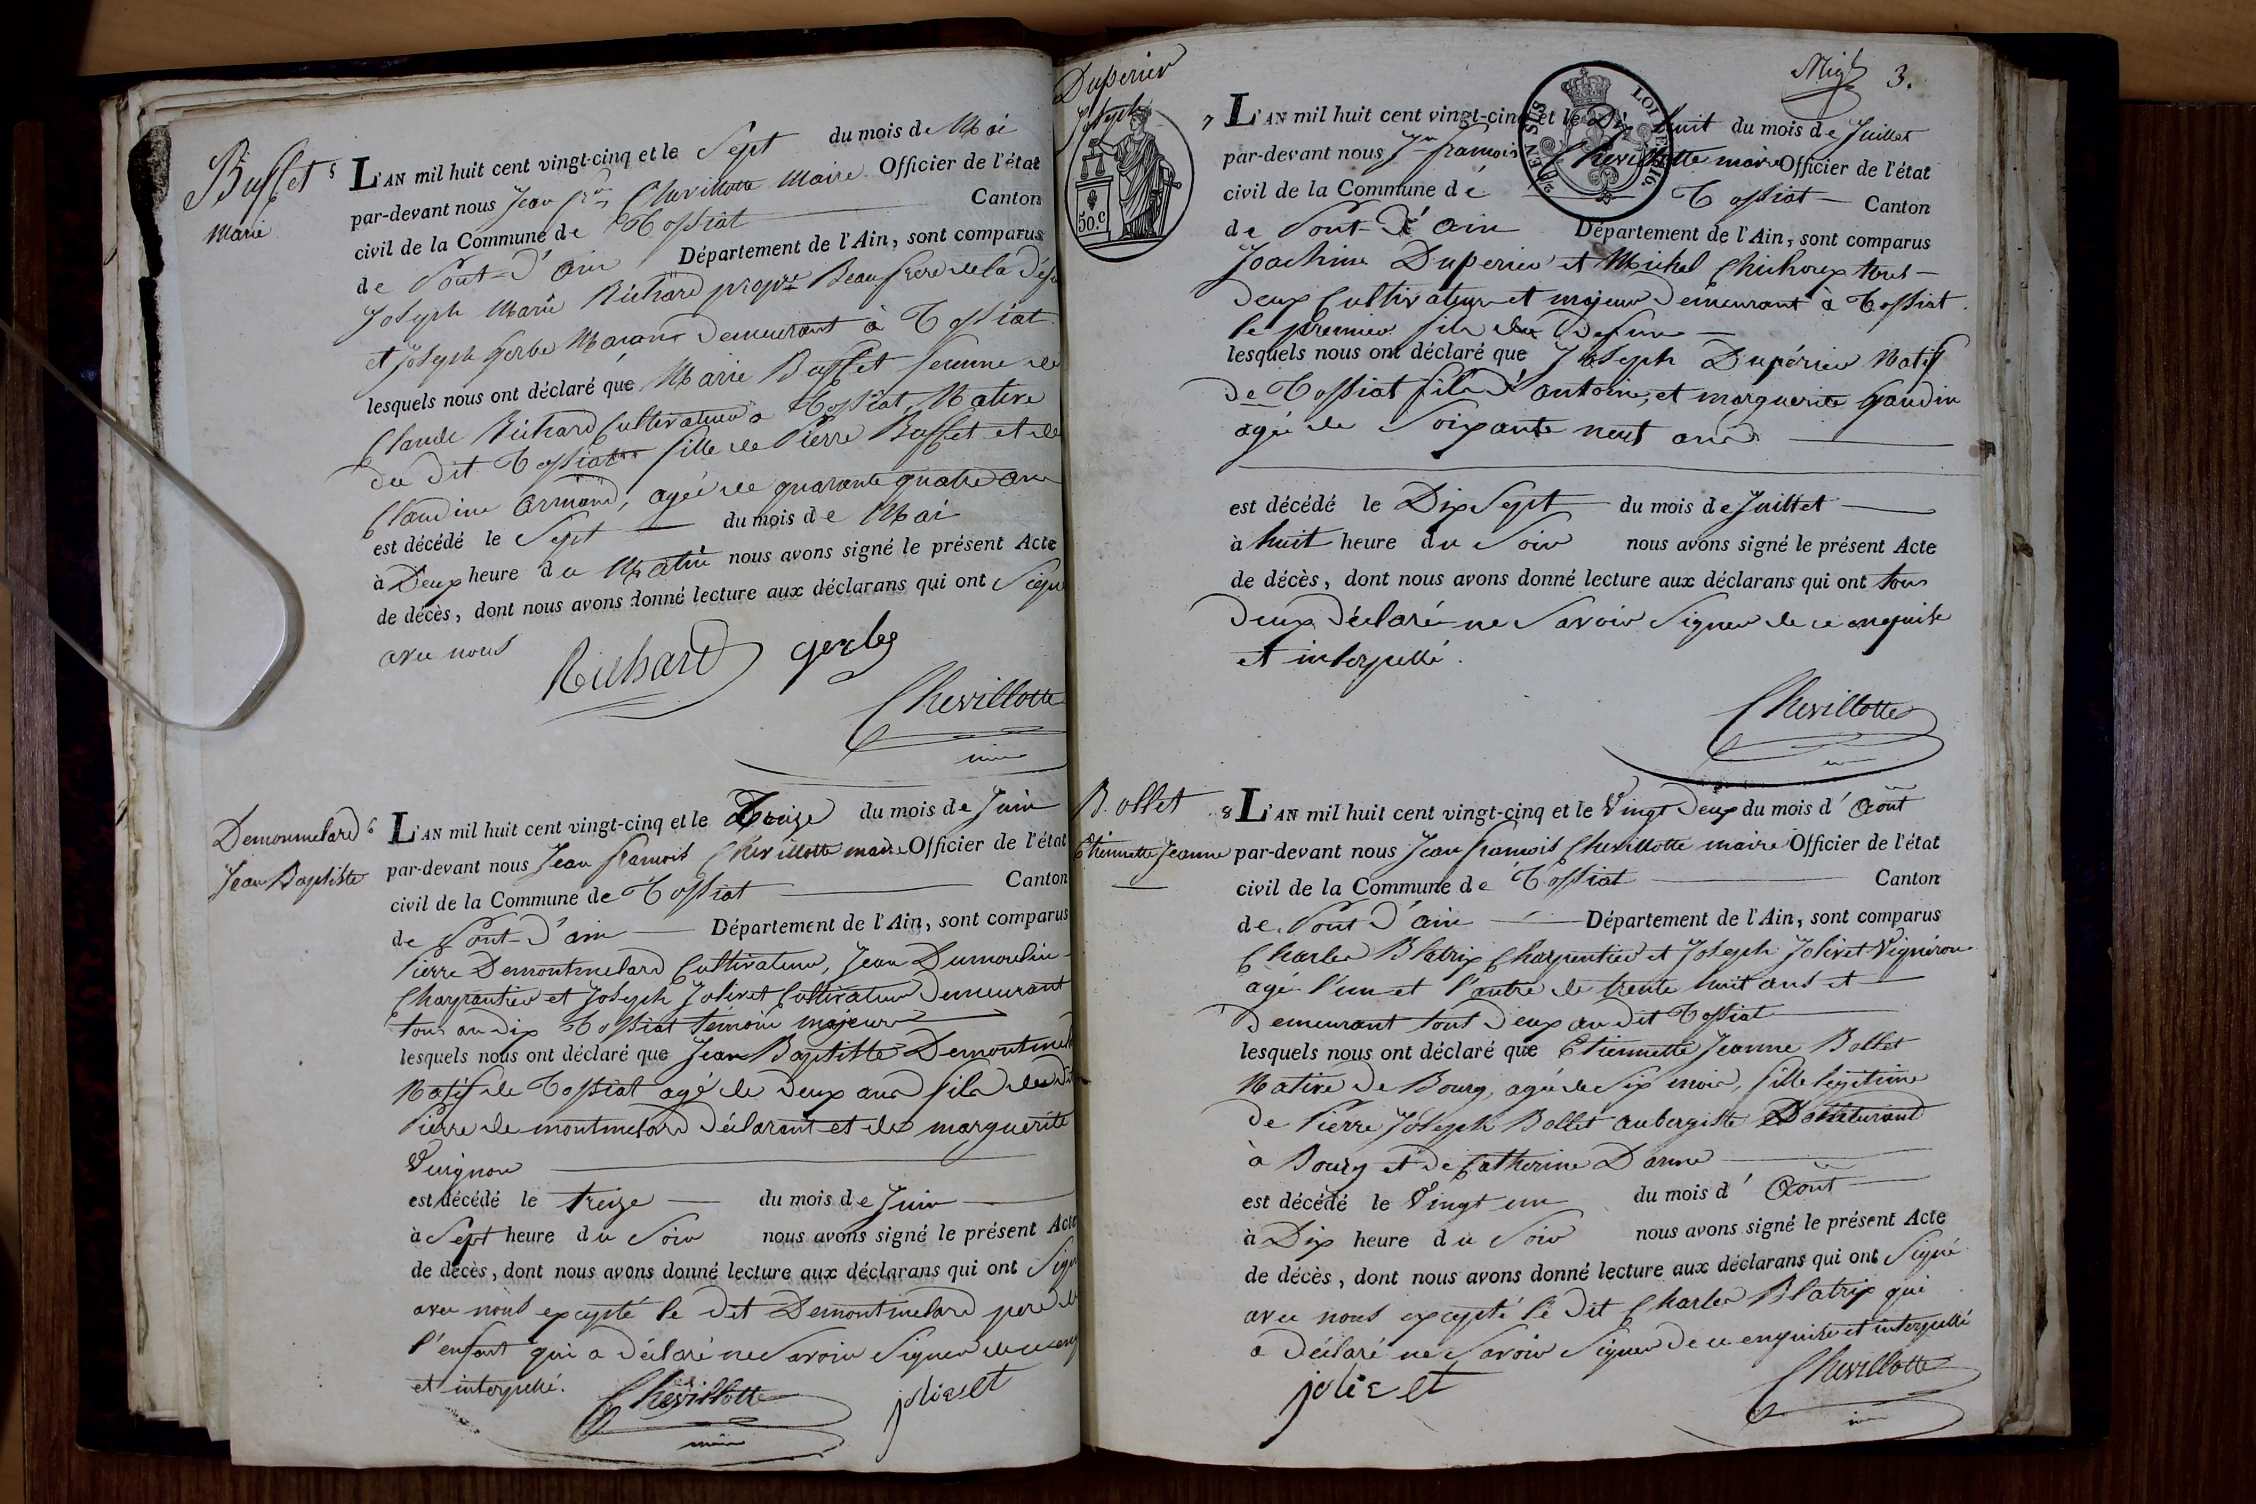 Buffet
Marie
5 L'AN mil huit cent vingt-cinq et le Sept du mois de Mai
par-devant nous Jean fr.ois Chevillotte Maire Officier de l'état
civil de la Commune de Tossiat Canton
de Pont-d'ain Département de l'Ain, sont comparus
Joseph Marie Richard propre Beaufrere de la
et Joseph Gerbe Maçon demeurant à Tossiat
lesquels nous ont déclaré que Marie Buffet femme de
Claude Richard Cultivateur à Tossiat, Native
du dit Tossiat fille de Pierre Buffet et de
Claudine Armand, agée de quarante quatre ans
est décédé le Sept du mois de Mai
à Deux heure du Matin nous avons signé le présent Acte
de décès, dont nous avons donné lecture aux déclarans qui ont Signé
avec nous
Richard gerbe
Chevillotte
maire
Demonmelard
Jean Baptiste
6 L'AN mil huit cent vingt-cinq et le Treize du mois de Juin
par-devant nous Jean françois Chevillotte maire Officier de l'état
civil de la Commune de Tossiat Canton
de Pont-d'ain Département de l'Ain, sont comparus
Pierre Demontmelard Cultivateur, Jean Dumoulin
Charpantier et Joseph Jolivet Cultivateur demeurant
tous au dix Tossiat témoin majeurs
lesquels nous ont déclaré que Jean Baptiste Demontmel
Natif de Tossiat agé de deux ans fils du dit
Pierre de montmelard déclarant et de marguerite
Vuignon
est décédé le treize du mois de Juin
à Sept heure du Soir nous avons signé le présent Acte
de décès, dont nous avons donné lecture aux déclarans qui ont Signé
avec nous excepté le dit Demontmelard pere de
l'enfant qui a déclaré ne Savoir Signer de ce enq
et interpellé.
Chevillotte jolivet
maire
Duperier
Joseph
50.c
LOI DE 1816.
3.
7 L'AN mil huit cent vingt-cinq et le Dix huit du mois de Juillet
par-devant nous Jn françois Chevillotte maire Officier de l'état
civil de la Commune de Tossiat Canton
de Pont-d'ain Département de l'Ain, sont comparus
Joachim Duperier et Michel Chichoux tous
deux Cultivateur et majeur demeurant à Tossiat
le premier fils du Defunt
lesquels nous ont déclaré que Joseph Dupérier Natif
de Tossiat fils d'antoine, et marguerite Gaudin
agée de Soixante neuf ans
est décédé le Dix Sept du mois de Juillet
à huit heure du Soir nous avons signé le présent Acte
de décès, dont nous avons donné lecture aux déclarans qui ont tous
deux déclaré ne Savoir Signer de ce enquise
et interpellé.
Chevillotte
B. ollet
Etiennette Jeanne
8 L'AN mil huit cent vingt-cinq et le Vingt deux du mois d'Août
par-devant nous Jean françois Chevillotte maire Officier de l'état
civil de la Commune de Tossiat Canton
de Pont d'ain Département de l'Ain, sont comparus
Charles Blatrix Charpentier et Joseph Jolivet Vigneron
agé l'un et l'autre de trente huit ans et
demeurant tout deux au dit Tossiat
lesquels nous ont déclaré que Etiennette Jeanne Bollet
Native de Bourg, agée de Six mois, fille legitime
de Pierre Joseph Bollet aubergiste Demeurant
à Bourg et de Catherine Danne
est décédé le Vingt un du mois d'Août
à Dix heure du Soir nous avons signé le présent Acte
de décès, dont nous avons donné lecture aux déclarans qui ont Signé
avec nous excepté le dit Charles Blatrix qui
a déclaré ne Savoir Signer de ce enquise et interpellé
jolivet Chevillotte